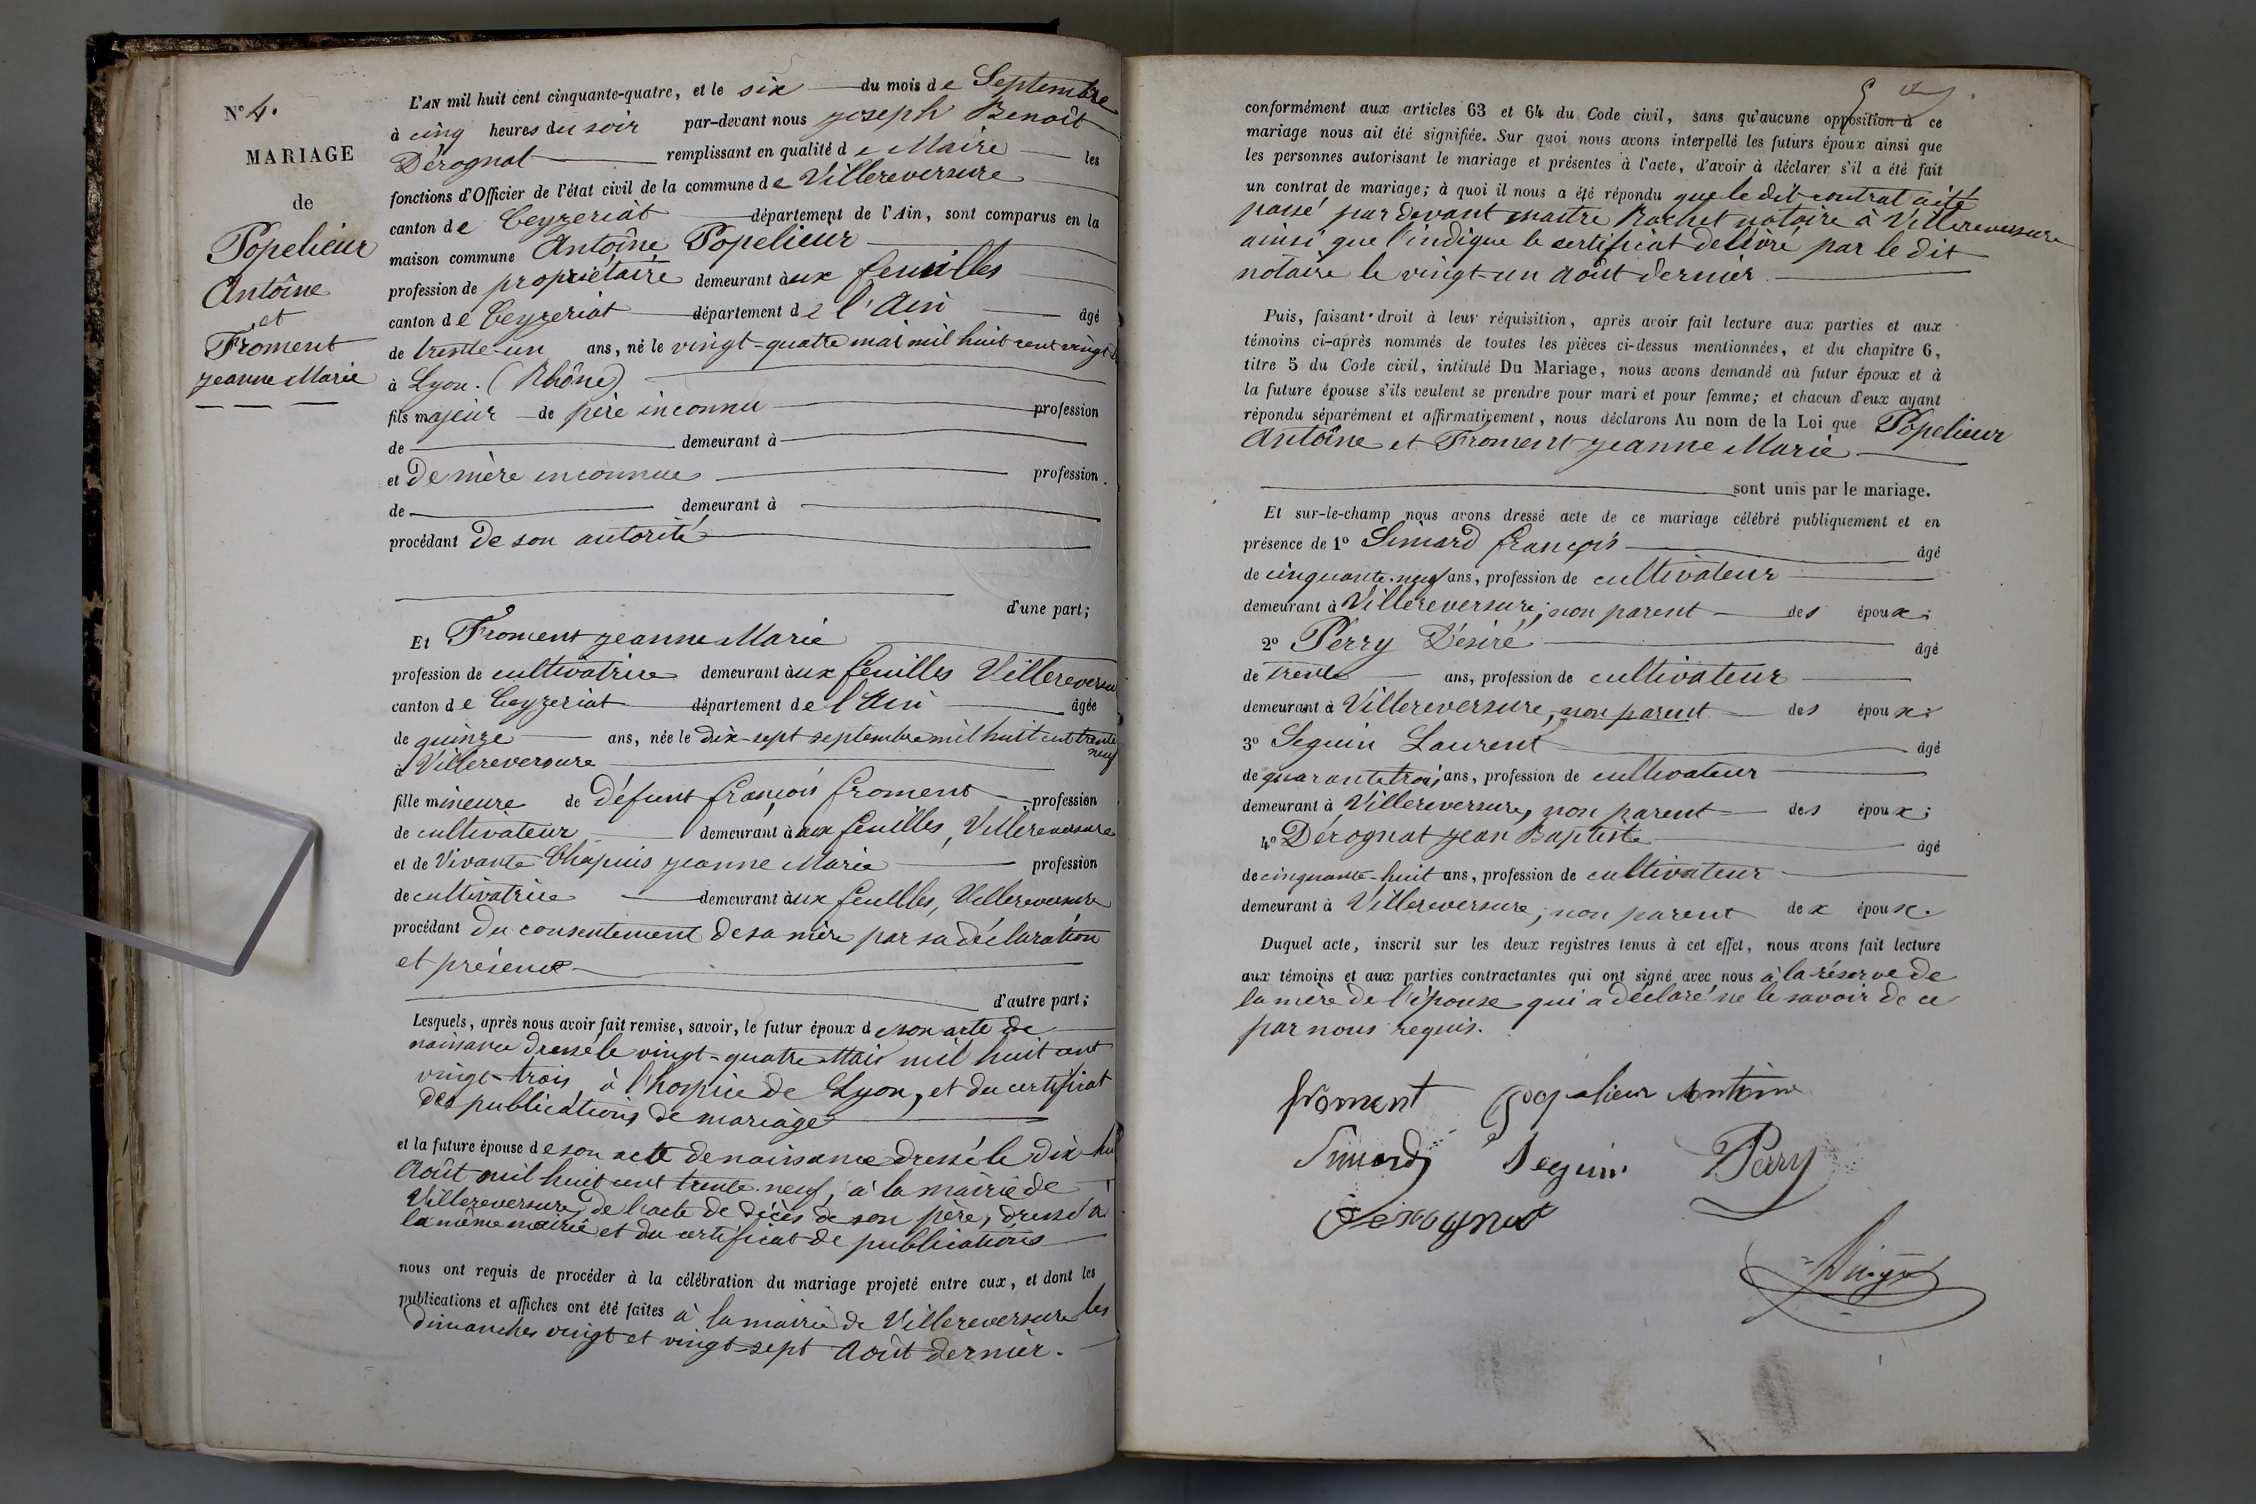 N° 4.
MARIAGE
de
Popelieur
Antoîne
et
Froment
jeanne Marie
L'AN mil huit cent cinquante-quatre, et le six du mois de Septembre
à cinq heures du soir par-devant nous joseph Benoît
Dérognat remplissant en qualité de Maire les
fonctions d'Officier de l'état civil de la commune de Villereversure
canton de Ceyzeriàt département de l'Ain, sont comparus en la
maison commune Antoîne Popelieur
profession de propriétaire demeurant àux feuilles
canton de Ceyzeriat département de l'Ain âgé
de trente-un ans, né le vingt-quatre mai mil huit cent vingt
à Lyon. (Rhône)
fils majeur de père inconnu profession
de demeurant à
et De mère inconnue profession.
de demeurant à
procédant De son autorité
d'une part;
Et Froment jeanne Marie
profession de cultivatrice demeurant àux feuilles Villereversu
canton de Ceyzeriat département de l'Ain âgée
de quinze ans, née le dix-sept septembre mil huit cent trente
neuf
à Villereversure
fille mineure de Défunt françois froment profession
de cultivateur demeurant à aux feuilles, Villereversure
et de Vivante Chapuis jeanne Marie profession
de cultivatrice demeurant àux feuilles, Villereversure
procédant Du consentement de sa mère par sa déclaration
et présence
d'autre part;
Lesquels, après nous avoir fait remise, savoir, le futur époux de son acte de
naissance dressé le vingt-quatre Mai mil huit cent
vingt-trois, à l'hospice de Lyon, et du certificat
des publications de mariage
et la future épouse de son acte de naissance dressé le Dix-hui
Août mil huit cent trente neuf, à la mairie de
Villereversure, de l'acte de décès de son père, dressé à
la même mairie et du certificat de publications
nous ont requis de procéder à la célébration du mariage projeté entre eux, et dont les
publications et affiches ont été faites à la mairie de Villereversure les
dimanches vingt et vingt-sept Août dernier.
conformément aux articles 63 et 64 du Code civil, sans qu'aucune opposition à ce
mariage nous ait été signifiée. Sur quoi nous avons interpellé les futurs époux ainsi que
les personnes autorisant le mariage et présentes à l'acte, d'avoir à déclarer s'il a été fait
un contrat de mariage; à quoi il nous a été répondu que le dit contrat a été
passé par devant maître Rachet notaire à Villereversure
ainsi que l'indique le certificat délivré par le dit
notaire le vingt-un Août dernier.
Puis, faisant droit à leur réquisition, après avoir fait lecture aux parties et aux
témoins ci-après nommés de toutes les pièces ci-dessus mentionnées, et du chapitre 6,
titre 5 du Code civil, intitulé Du Mariage, nous avons demandé au futur époux et à
la future épouse s'ils veulent se prendre pour mari et pour femme; et chacun d'eux ayant
répondu séparément et affirmativement, nous déclarons Au nom de la Loi que Popelieur
Antoîne et Froment jeanne Marie
sont unis par le mariage.
Et sur-le-champ nous avons dressé acte de ce mariage célébré publiquement et en
présence de 1° Simard françois âgé
de cinquante-neuf ans, profession de cultivateur
demeurant à Villereversure; non parent des époux;
2° Perry Désiré âgé
de trente ans, profession de cultivateur
demeurant à Villereversure, non parent des époux;
3° Seguin Laurent âgé
de quarante trois ans, profession de cultivateur
demeurant à Villereversure, non parent des époux;
4° Dérognat jean Baptiste âgé
de cinquante-huit ans, profession de cultivateur
demeurant à Villereversure; non parent dex époux.
Duquel acte, inscrit sur les deux registres tenus à cet effet, nous avons fait lecture
aux témoins et aux parties contractantes qui ont signé avec nous à la réserve de
la mère de l'épouse qui a déclaré ne le savoir de ce
par nous requis.
froment popelieur Antoine
Simard Seguin Perry
Derognat